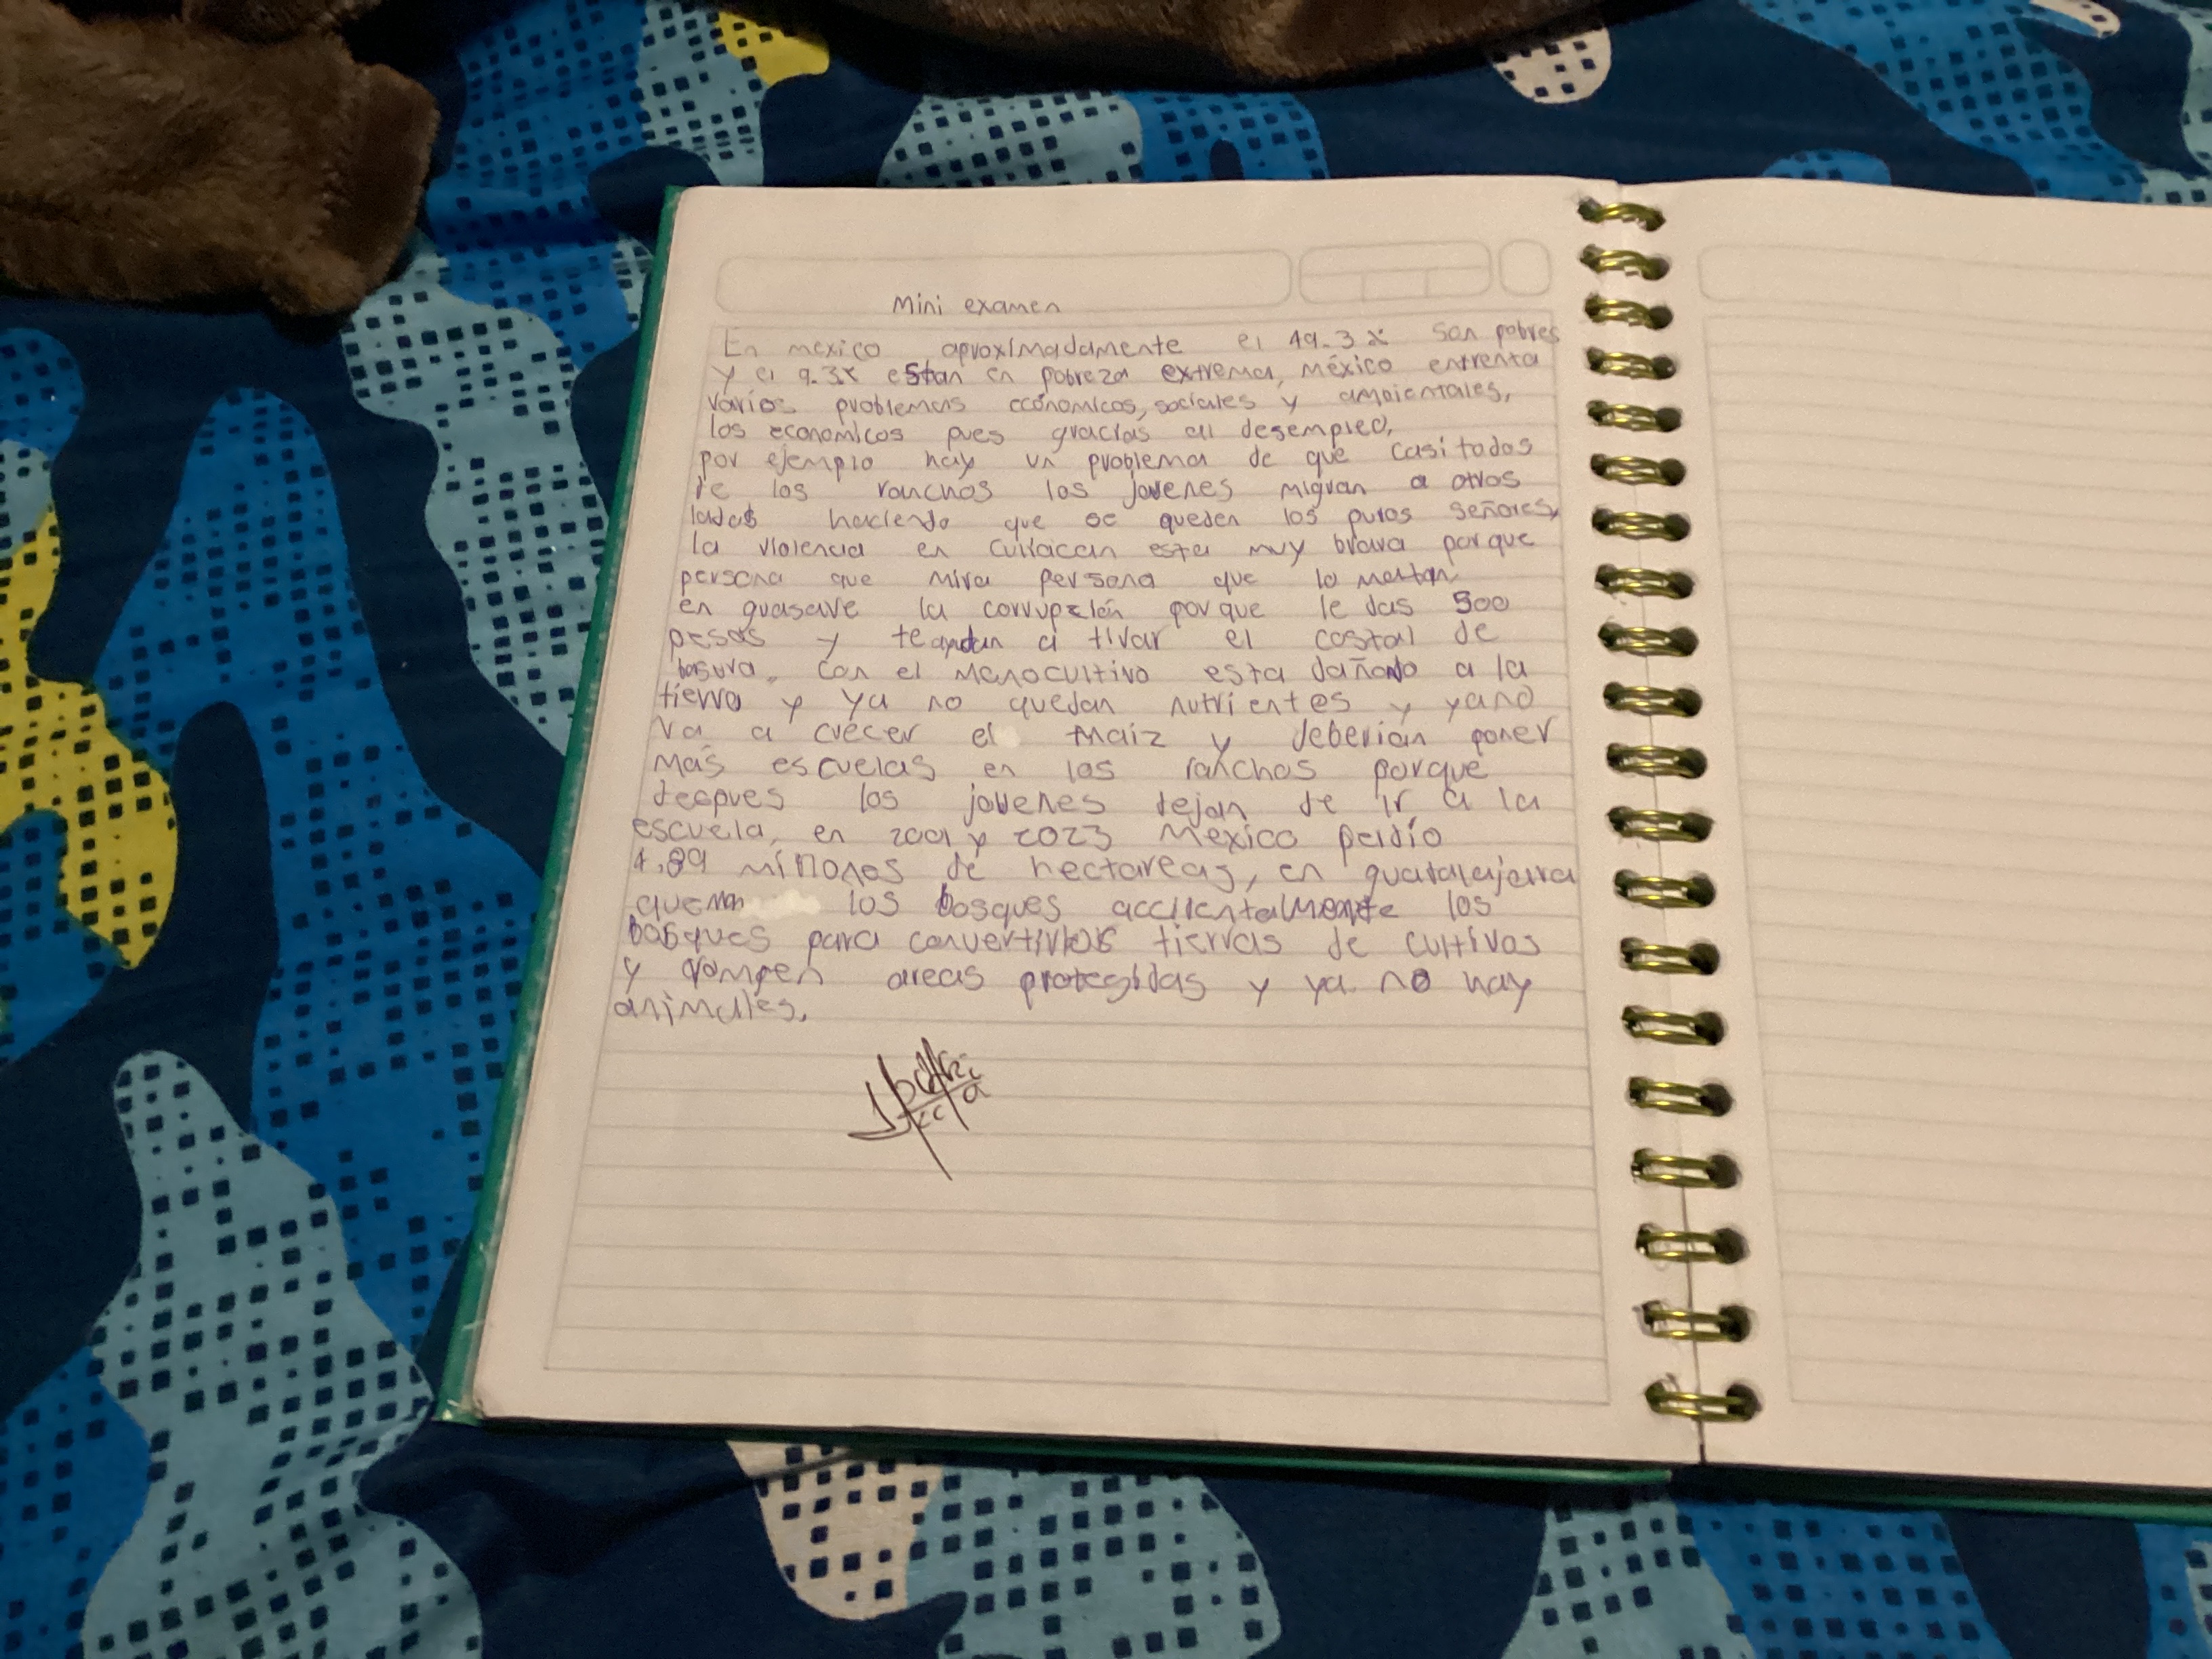 Mini examen
En mexico aproximadamente el 49.3% son pobres
y el 9.3% estan en pobreza extrema, méxico enfrenta
varios problemas económicos, sociales y ambientales,
los economicos pues gracias al desempleo,
por ejemplo hay un problema de que casi todos
de los ranchos los jovenes migran a otros
lados haciendo que se queden los puros señores,
la violencia en Culiacan esta muy brava porque
persona que mira persona que la mattan,
en guasave la corrupción porque le das 500
pesos y te andan a tirar el costal de
basura, con el monocultivo esta dañando a la
tierra y ya no quedan nutrientes y yano
va a crecer el maíz y deberian poner
más escuelas en los ranchos porque
despues los jovenes dejan de ir a la
escuela, en 2001 y 2023 México perdío
4.89 millones de hectareas, en guadalajara
queman los bosques accidentalmente los
bosques para convertirlos tierras de cultivos
y rompen areas protegidas y ya no hay
animales.